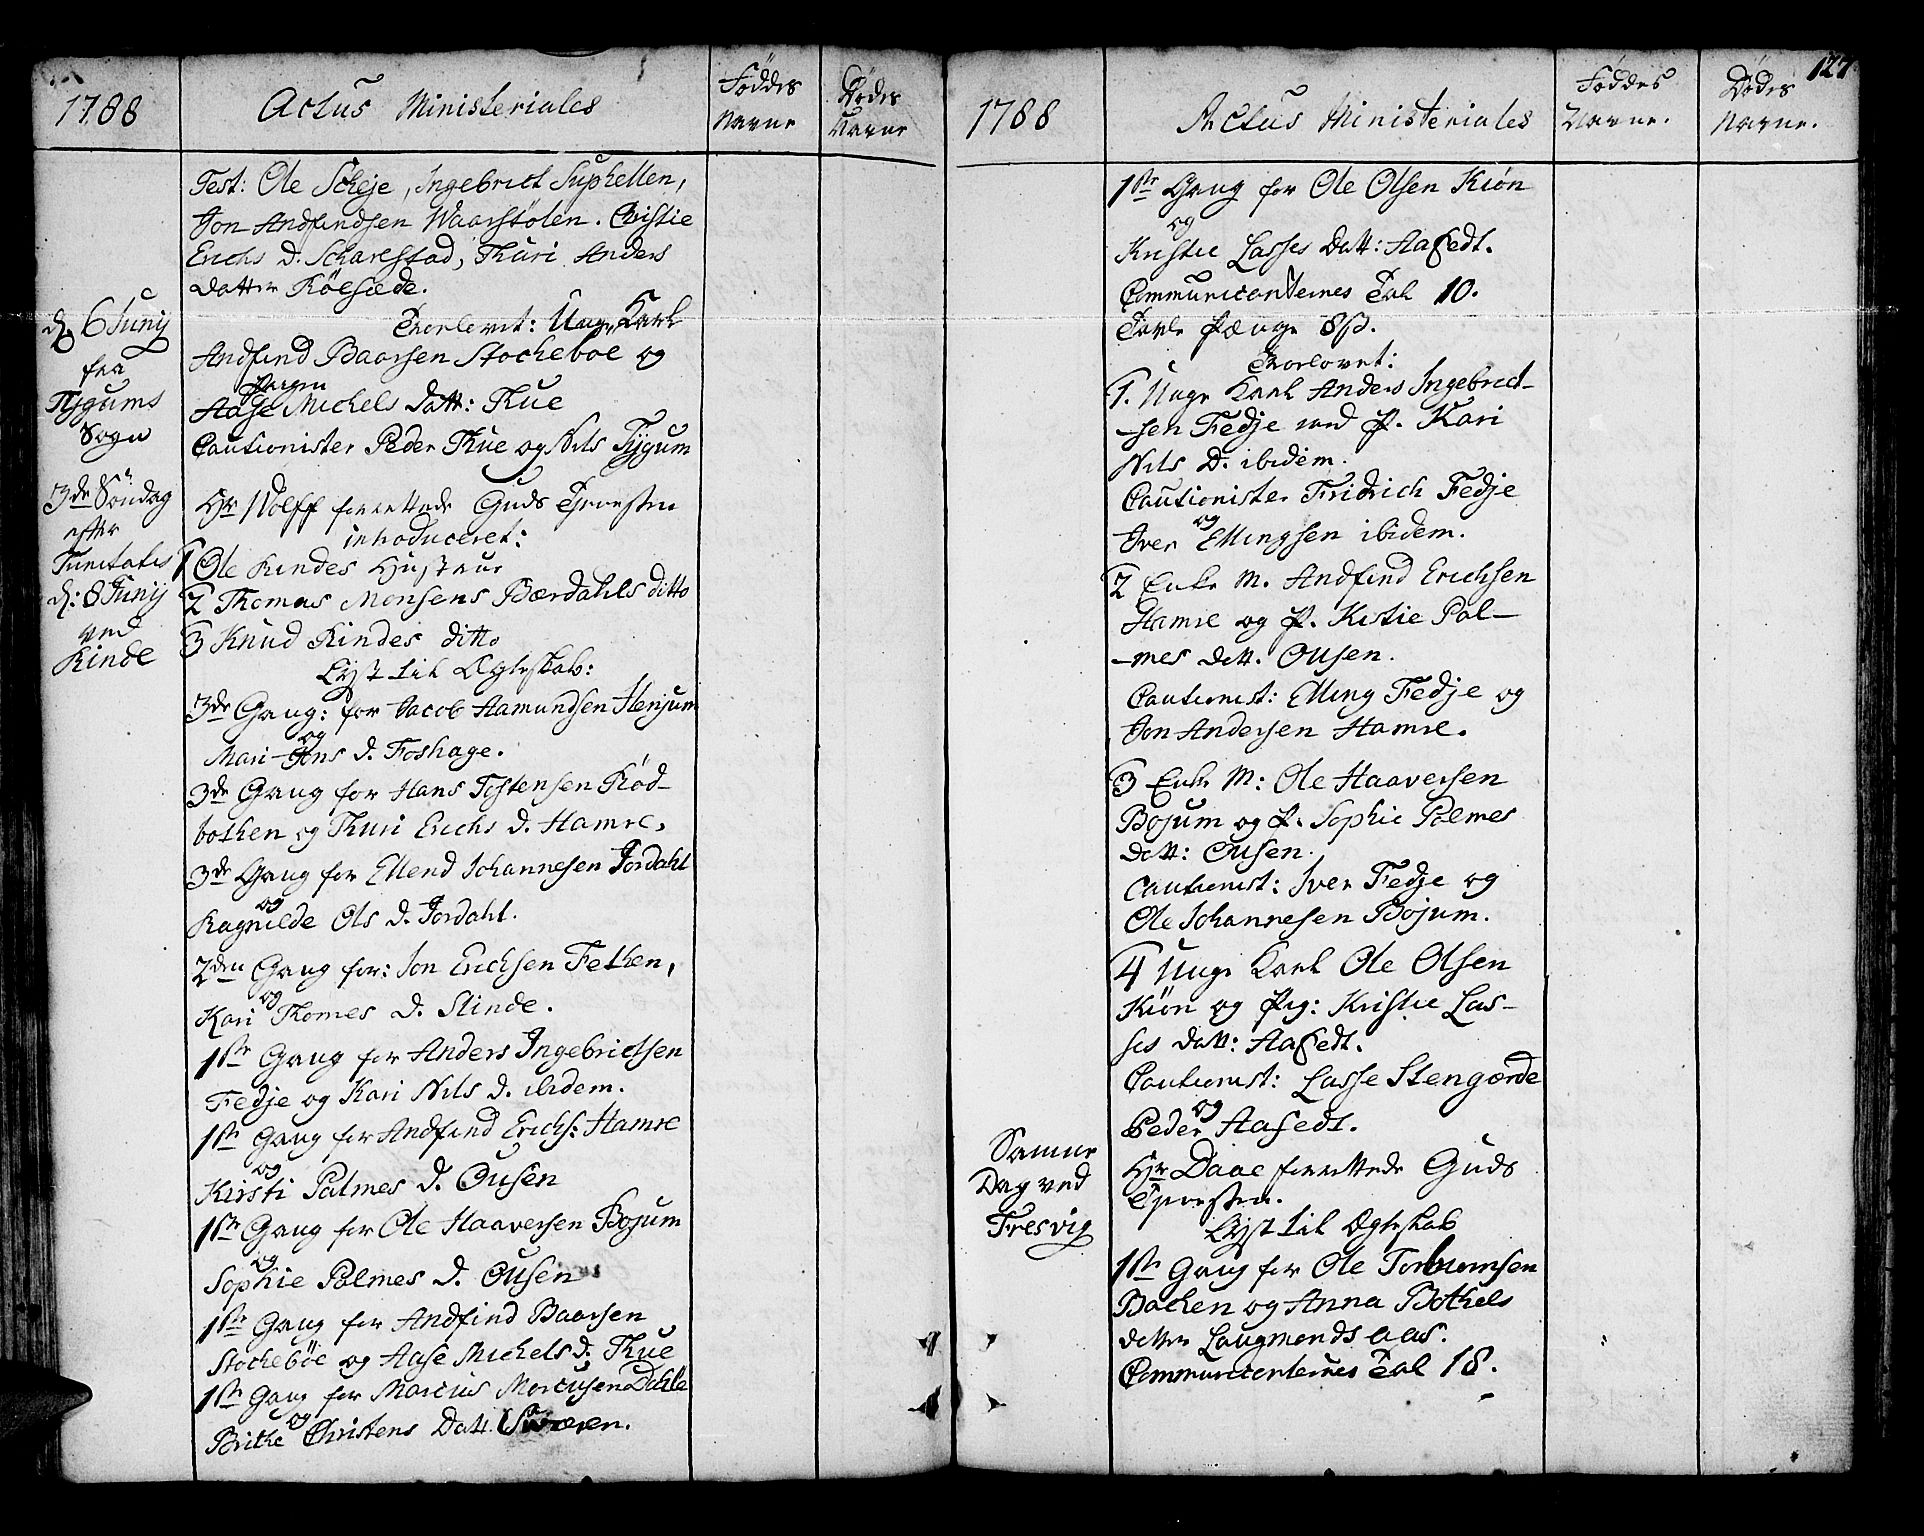 1788
Actus Ministeriales
Föddes Navne
Dödes Navne
Test: Ole Scheje, Ingebrict Suphellen,
Jon Andfindsen Waarstölen. Christie
Erichs D. Scharestad, Thuri Anders
datter Röesæde.
d. 6 Junij
fra
Tygums
Sogn
Trolovet: Unge Karl
Andfind Baarsen Stocheboe og
Pigen
Aase Michels Datt: Thue
Cautionister Peder Thue og Nils Tygum
3de Söndag
efter
Trinitatis
d: 8 Junij
ved
Rinde
Hr Wolff forrettede Guds Tjenesten
introduceret:
1 Ole Rindes Hustrue
2 Thomas Monsens Bærdahls ditto
3 Knud Rindes ditto
Lyst til Ægteskab:
3de Gang: for Jacob Aamundsen Henjum
og
Mari Ans d. Foshage.
3de Gang for Hans Tostensen Röd-
bothen og Thuri Erichs d. Hamre,
3de Gang for Ellend Johannesen Jordahl
og
Ragnilde Ols d. Jordahl.
2den Gang for: Jon Erichsen Fethen,
og
Kari Thomes d. Slinde.
1ste Gang for Anders Ingebrictsen
Fedje og Kari Nils d. ibidem.
1ste Gang for Andfind Erichs: Hamre
og
Kirsti Palmes d. Ousen
1ste Gang for Ole Haaversen Bojum
og
Sophie Palmes d. Ousen
1ste Gang for Andfind Baarsen
Stocheböe og Aase Michels d. Thue
1ste Gang for Marcus Marcusen Dahle
og
Brithe Christens Datt. Sværen.
127
1788
Actus Ministeriales
Föddes Navne.
Dödes Navne.
1ste Gang for Ole Olsen Kiön
og
Kristie Lasses Datt: Aafedt.
Communicanternes Tal 10.
Tavle Penge 8 ß.
Trolovet:
1. Unge Karl Anders Ingebrict-
-sen Fedje med P. Kari
Nils D. ibidem.
Cautionister Fridrich Fedje
og
Iver Ellingsen ibidem.
2 Enke M. Andfind Erichsen
Hamre og P. Kistie Pal-
-mes datt. Ousen.
Cautionist: Elling Fedje og
Jon Andersen Hamre.
3 Enke M: Ole Haaversen
Bojum og P. Sophie Palmes
datt: Ousen.
Cautionist: Iver Fedje og
Ole Johannesen Bojum.
4 Unge Karl Ole Olsen
Kiön og Pig: Kristie Las-
ses datt: Aafedt.
Cautionist: Lasse Stengærde
og
Peder Aafedt.
Samme
Dag ved
Fresvig
Hr Daae forrettede Guds
Tjenesten.
Lyst til Ægteskab
1ste Gang for Ole Torbiornsen
Bachen og Anna Bothels
datter Laugmandsaas.
Communicanternes Tal 18.